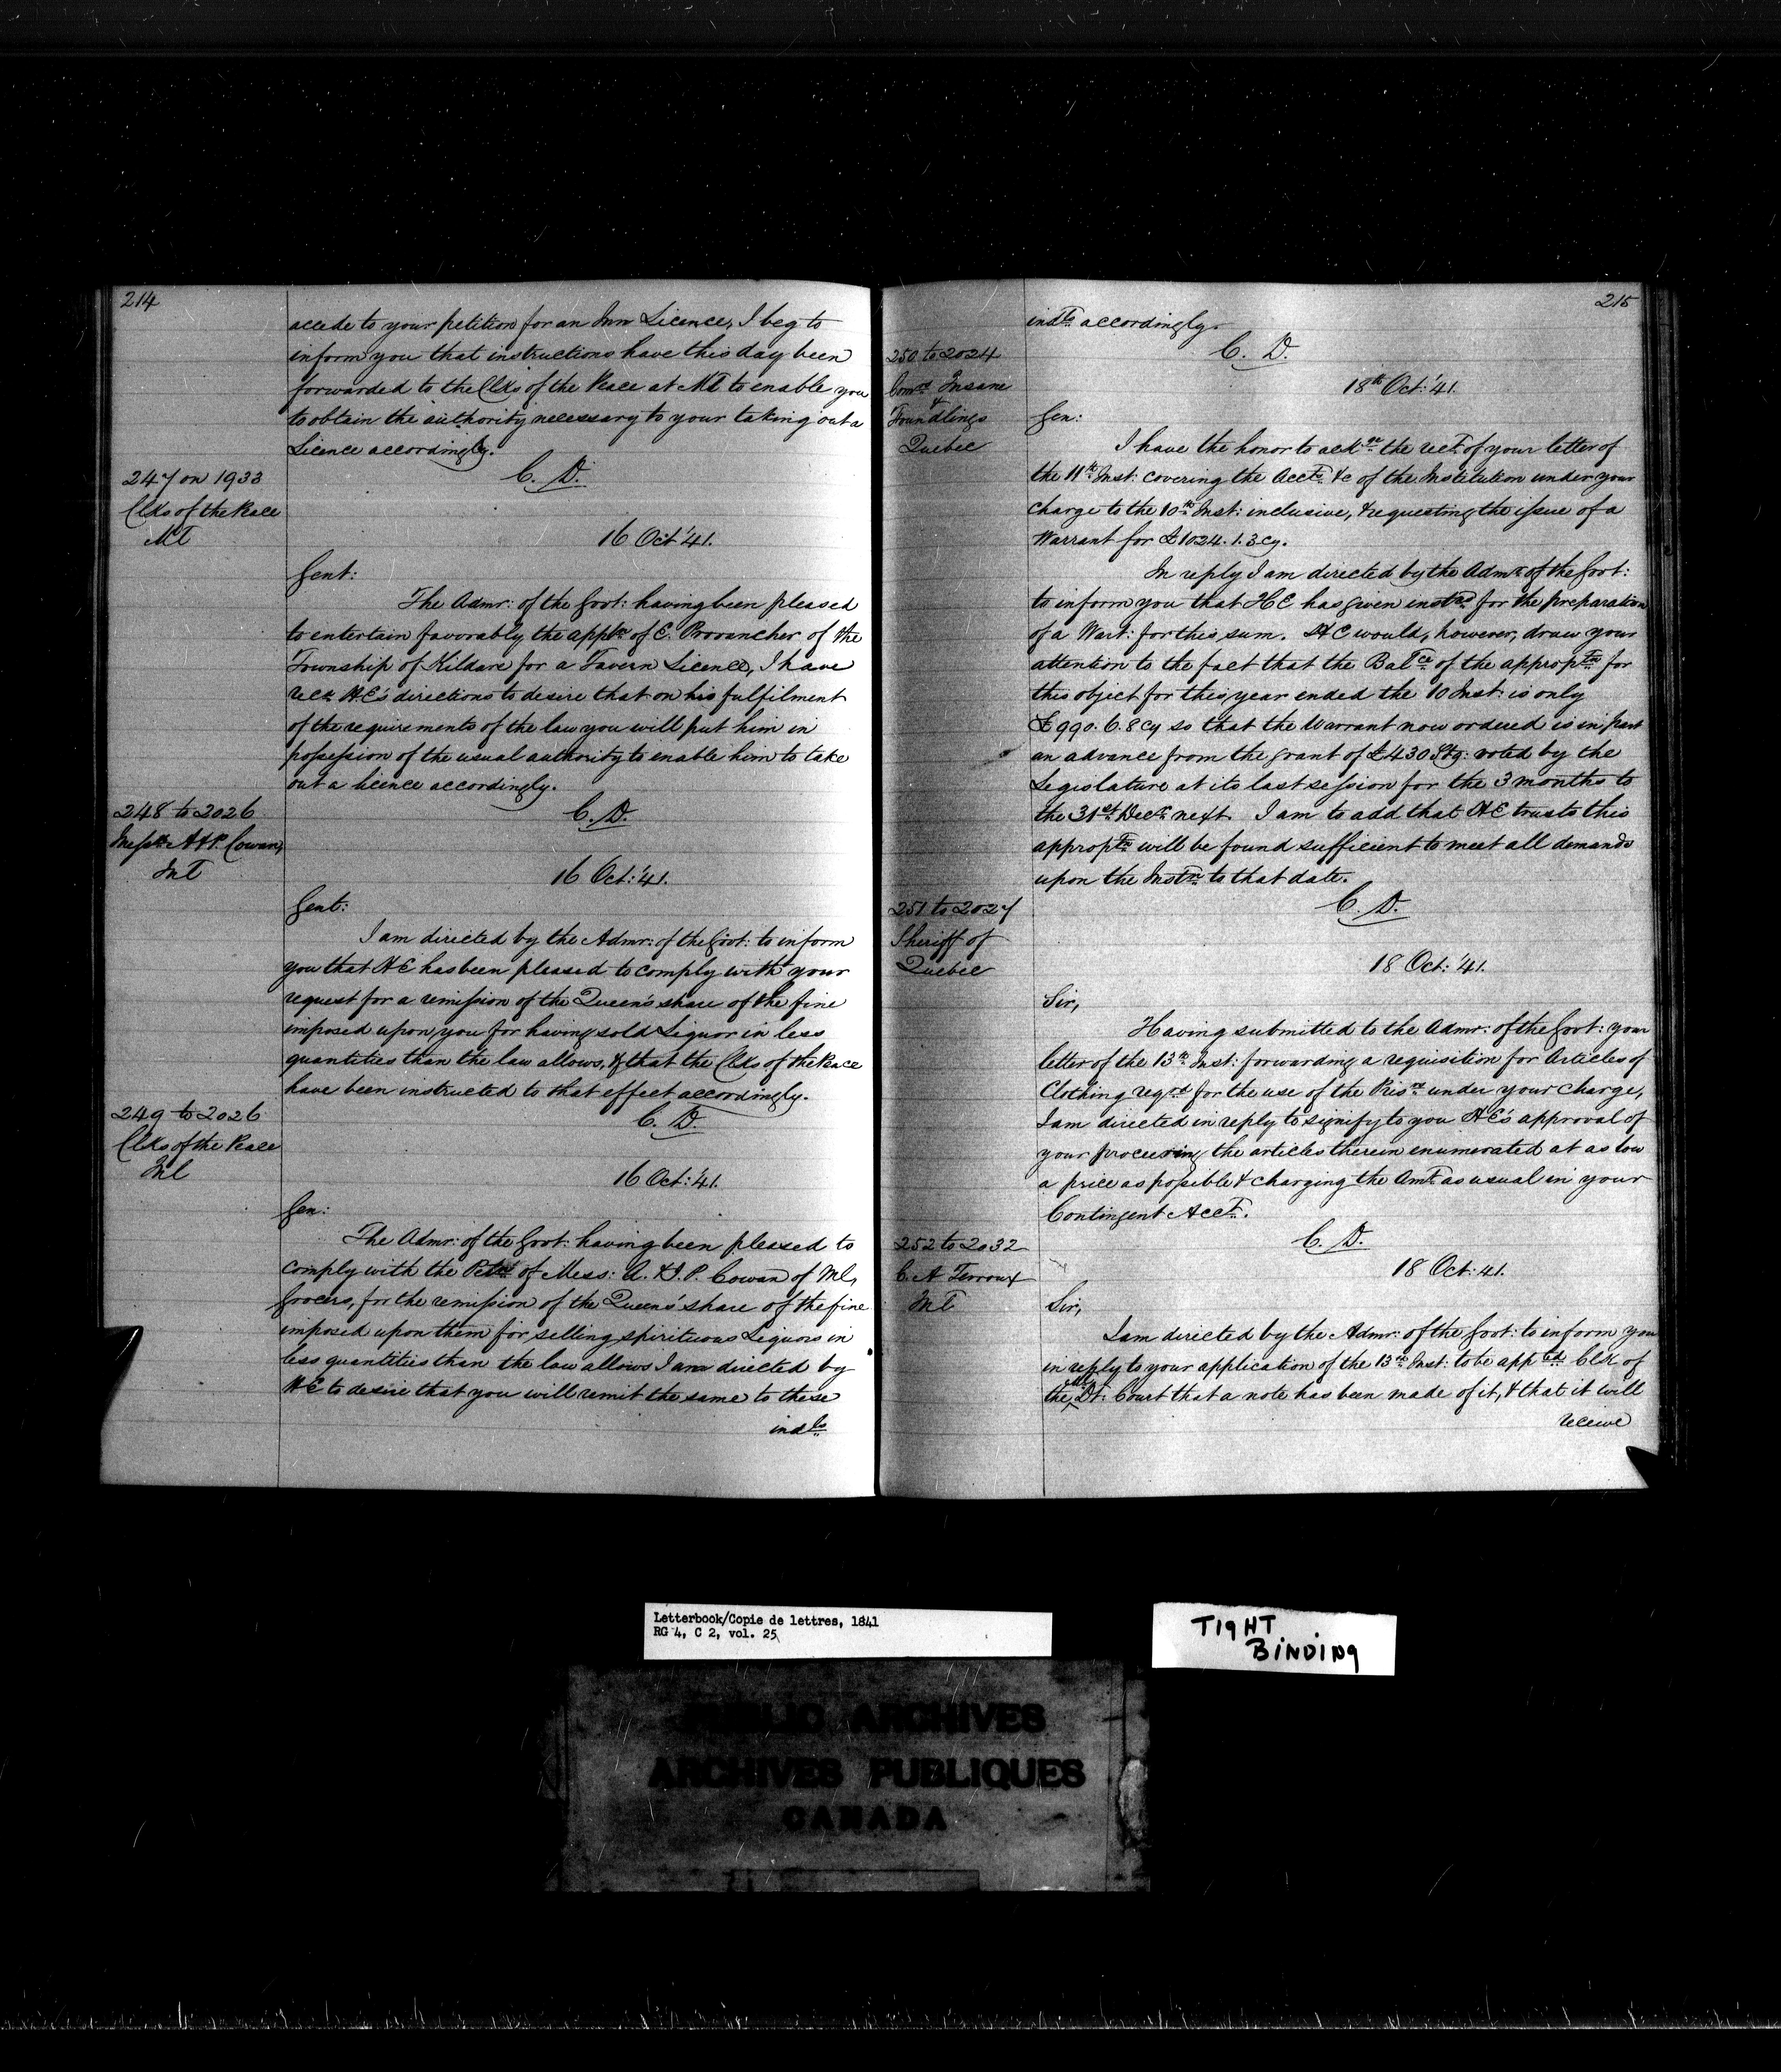 214
accede to your petition for an Inn Licence, I beg to
inform you that instructions have this day been
forwarded to the Clks of the Peace at Ml to enable you
to obtain the authority necessary to your taking out a
Licence accordingly.
C. D.
247 on 1933
Clks of the Peace
Ml
16 Oct '41.
Gent:
The Admr: of the Govt: having been pleased
to entertain favorably the appln of E. Provancher of the
Township of Kildare for a Tavern Licence, I have
recd H.E's directions to desire that on his fulfilment
of the requirements of the law you will put him in
possession of the usual authority to enable him to take
out a licence accordingly.
C. D.
248 to 2026
Messrs A & P. Cowan,
Ml
16 Oct: '41.
Gent:
I am directed by the Admr: of the Govt: to inform
you that H E has been pleased to comply with your
request for a remission of the Queen's share of the fine
imposed upon you for having sold Liquor in less
quantities than the law allows, & that the Clks of the Peace
have been instructed to that effect accordingly.
C. D.
249 to 2026
Clks of the Peace
Ml
16 Oct: '41.
Gen:
The Admr: of the Govt: having been pleased to
comply with the Petn of Mess: A. & J. P. Cowan of Ml,
Grocers, for the remission of the Queen's share of the fine
imposed upon them for selling spirituous Liquors in
less quantities than the law allows I am directed by
H E to desire that you will remit the same to these
indls
215
indls accordingly.
C. D.
250 to 2024
Comrs Insane
&
Foundlings
Quebec
18th Oct: '41.
Gen:
I have the honor to ackge the rect of your letter of
the 11th Inst: covering the Accts &c of the Institution under your
charge to the 10th Inst: inclusive, & requesting the issue of a
Warrant for £1024. 1. 3 cy.
In reply I am directed by the Admr of the Govt:
to inform you that H E has given instns for the preparation
of a Wart: for this sum. H E would, however, draw your
attention to the fact that the Balce of the appropn for
this object for this year ended the 10 Inst: is only
£990. 6. 8 cy so that the Warrant now ordered is in part
an advance from the grant of £430 Stg: voted by the
Legislature at its last session for the 3 months to
the 31st Decr next. I am to add that H E trusts this
appropn will be found sufficient to meet all demands
upon the Instn to that date.
C. D.
251 to 2027
Sheriff of
Quebec
18 Oct: '41.
Sir,
Having submitted to the Admr: of the Govt: your
letter of the 13th Inst: forwarding a requisition for Articles of
Clothing reqrd for the use of the Prisrs under your charge,
I am directed in reply to signify to you H E's approval of
your procuring the articles therein enumerated at as low
a price as possible & charging the Amt as usual in your
Contingent Acct.
C. D.
252 to 2032
C. A Terroux
Ml
18 Oct: 41.
Sir,
I am directed by the Admr: of the Govt: to inform you
in reply to your application of the 13th Inst: to be apptd Clk of
the Dt: Court that a note has been made of it, & that it will
receive
Letterbook/Copie de lettres, 1841
RG 4, C 2, vol. 25
TIGHT
BINDING
PUBLIC ARCHIVES
ARCHIVES PUBLIQUES
CANADA